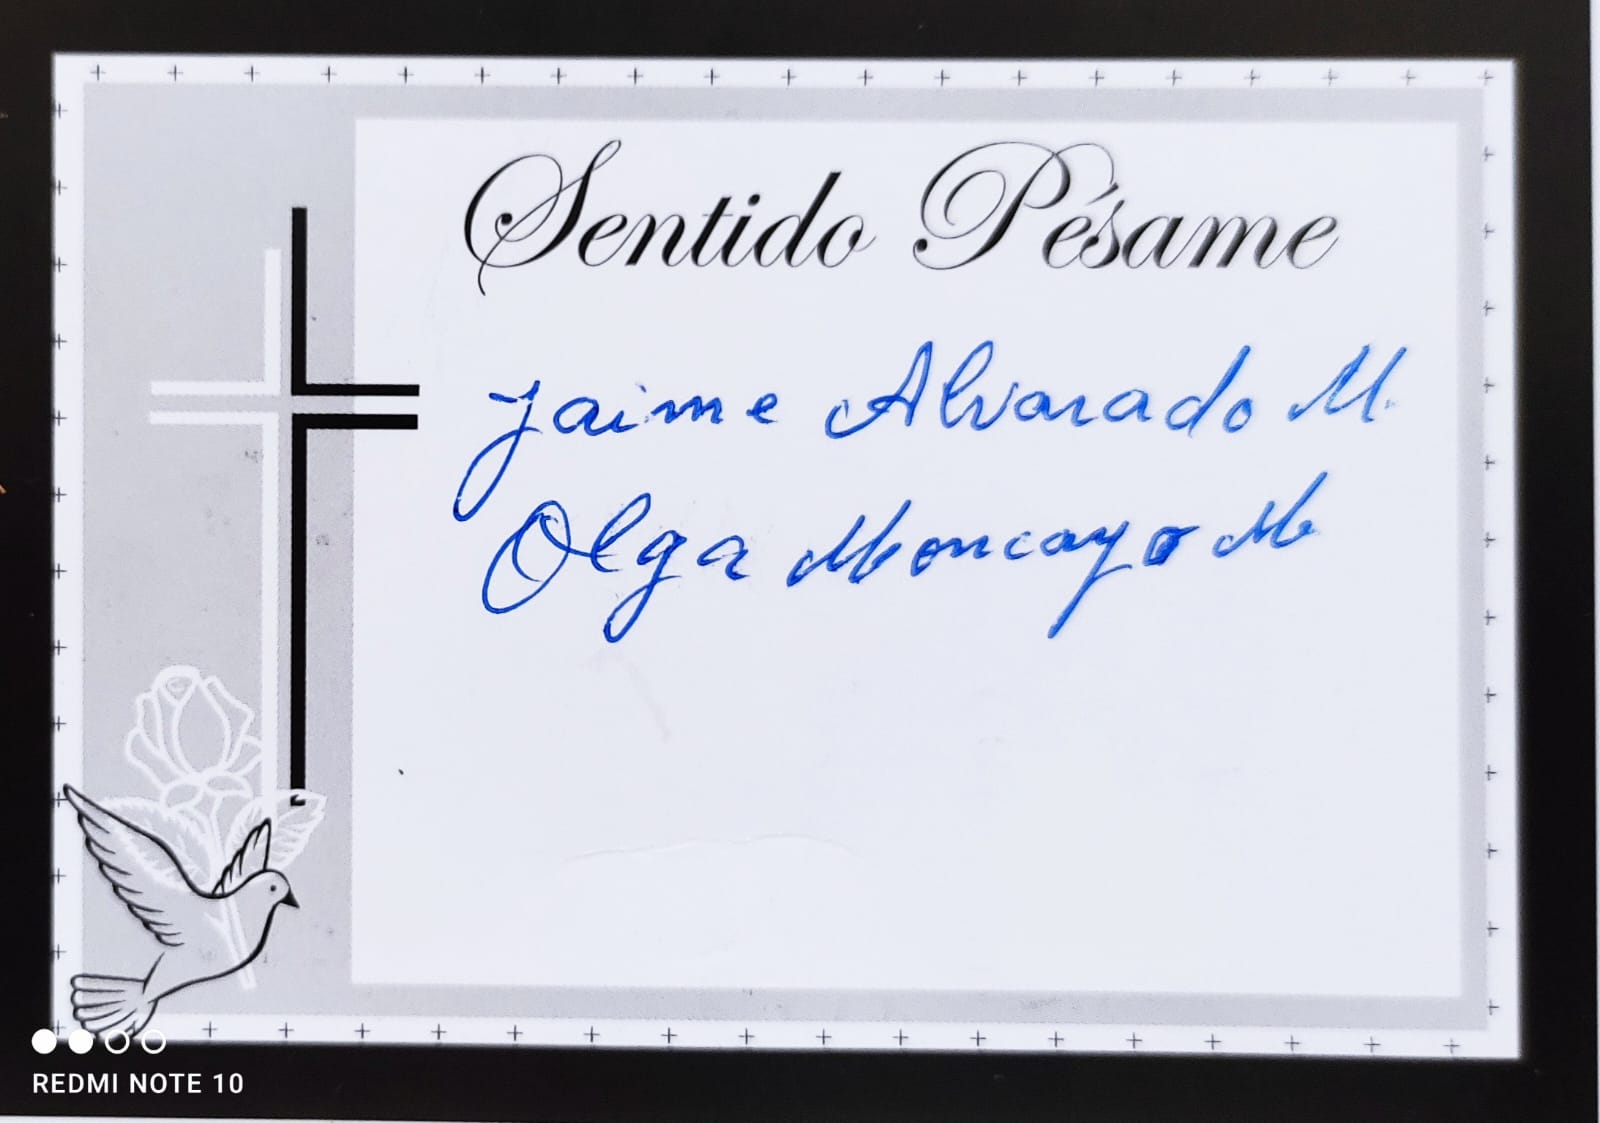 Sentido Pésame
Jaime Alvarado M.
Olga Moncayo M
REDMI NOTE 10